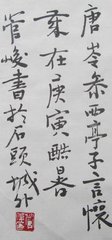 唐岑參西亭子言懷
歲在庚寅酷暑
管峻書於石頭城外